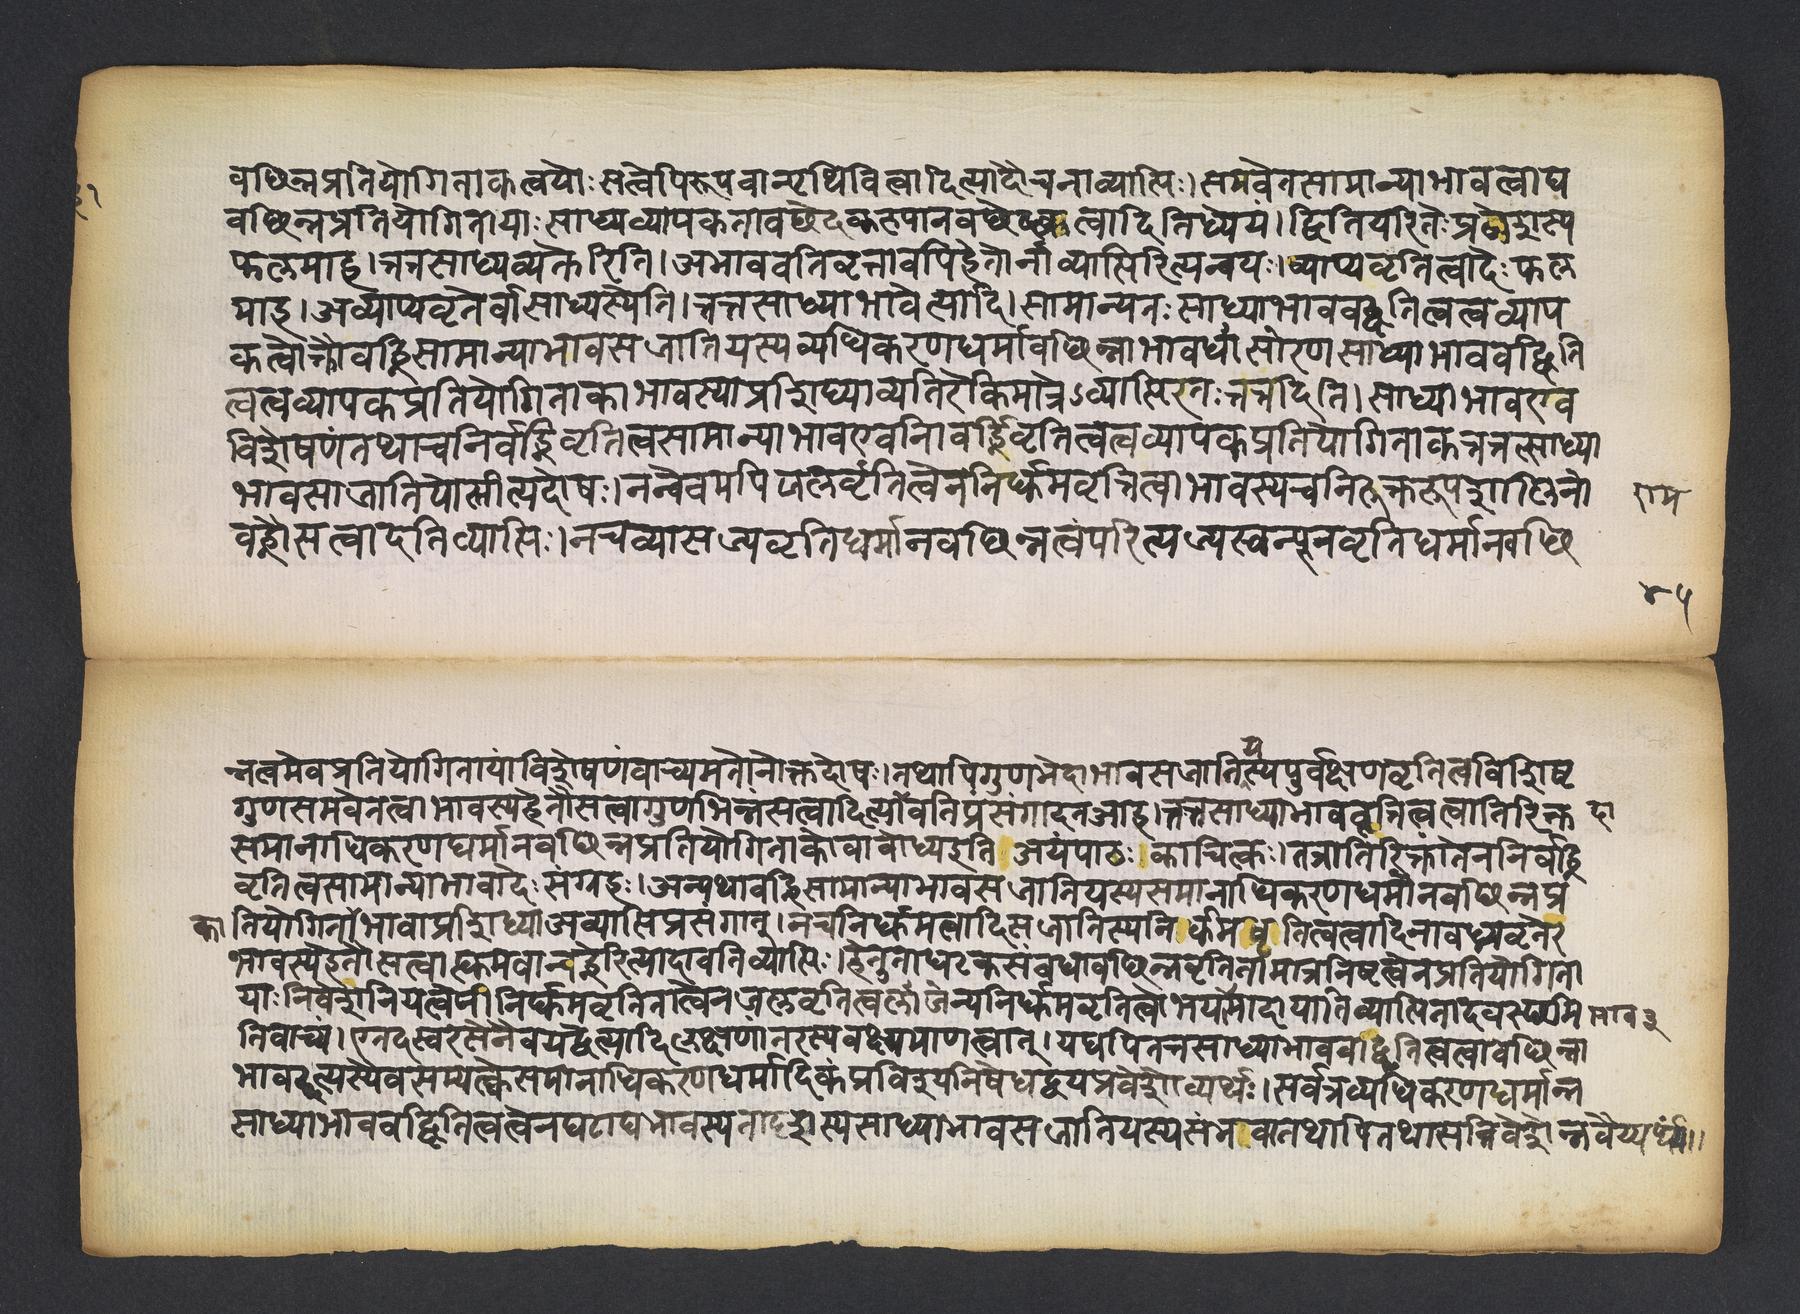 वछिन्नप्रतियोगिताकत्वयोः सत्वेपिरूपवान्पृथिवित्वादित्यादौचनाव्याप्तिः। समवेतसामान्याभावत्वाघ
वछिन्नप्रतियोगितायाः साध्यव्यापकतावछेदकरूपानवछेद त्वादितिध्येयं। द्वितियरितेः प्र
फलमाह। तत्रसाध्यव्यक्तेरिति। अभाववतिवृत्तावपिहेतोर्नाव्याप्तिरित्यन्वयः। व्याप्यवृतित्वादेः फल
माह। अव्याप्यवृतेर्वासाध्यस्येति। तत्रसाध्याभावेत्यादि। सामान्यतः साध्याभाववद्वृतित्वत्वव्याप
कत्वोक्तौवह्निसामान्याभावसजातियस्यव्यधिकरणधर्मावछिन्नाभावधासारणसाध्याभाववद्वृति
त्वत्वव्यापकप्रतियोगिताकाभावस्याप्रशिध्याव्यतिरेकिमात्रेऽव्याप्तिरतः तत्रदिति। साध्याभावएव
विशेषणंतथाचनिर्वह्निवृतित्वसामान्याभावएवनिर्वह्निवृतित्वत्वव्यापकप्रतियोगिताकतत्रत्साध्या
भावसाजातियोस्तीत्यदोषः। नन्वैवमपिजलवृतित्वेननिर्धूमवृत्तित्वाभावस्यचनिरुक्तरूपशालिनो
वह्नौसत्वादतिव्याप्तिः। नचव्यासज्यवृतिधर्मानवछिन्नत्वंपरित्यज्यस्वन्यूनवृतिधर्मानवछि
राम
४५
न्नत्वमेवप्रतियोगितायांविशेषणंवाच्यमतोनोक्तदोषः। तथापिगुणभेदाभावसजातिस्यपुर्वक्षणवृतित्वविशिष्ट
य
गुणसमवेतत्वाभावस्यहेतौसत्वागुणभिन्नंसत्वादित्यावतिप्रसंगादतआह। तत्रसाध्याभाववृत्तित्वत्वातिरिक्त
दा
समानाधिकरणधर्मानवछिन्नप्रतियोगिताकोवाबोध्यइति अयंपाठः काचित्कः। तत्रातिरिक्तांतेननिर्वह्नि
वृतित्वसामान्याभावादेः संग्रहः। अन्यथावह्निसामान्याभावसजातियस्यसमानाधिकरणधर्मानवछिन्नप्र
का
तियोगिताभावाप्रशिध्याअव्याप्तिप्रसंगात्। नचनिर्धूमत्वादिसजातिस्यानिर्धूम तित्वत्वादिनावध्यवृतेर
भावस्यहेतौसत्वाद्धूमवान्वह्नेरित्यादावतिव्याप्तिः। हेतुताघटकसंबधावछिन्नवृतितामात्रनिष्टत्वेनप्रतियोगिता
याः निवेशनियत्वेपी निर्धूमवृतितात्वेनजलवृतित्व जन्यनिर्धूमवृतित्वोभयमादायातिव्याप्तितादवस्थ्यमि
भाव ३
तिवाच्यं। एतदस्वरसेनैवयद्वेत्यादिलक्षणांतरस्यवक्ष्यमाणत्वात्। यद्यपितत्रसाध्याभाववद्वृतित्वत्वावछिन्ना
भावइत्यस्यैवसम्यत्केसमानाधिकरणधर्मादिकंप्रविश्यनिषेधद्वयप्रवेशोव्यर्थः। सर्वत्रव्यधिकरणधर्मान्न
साध्याभाववद्वृतित्वत्वेनघटाद्यभावस्यतादृशस्यसाध्याभावसजातियस्यसंभवात्तथापितथासन्निवेशेन्नवैय्यर्थ्यं॥